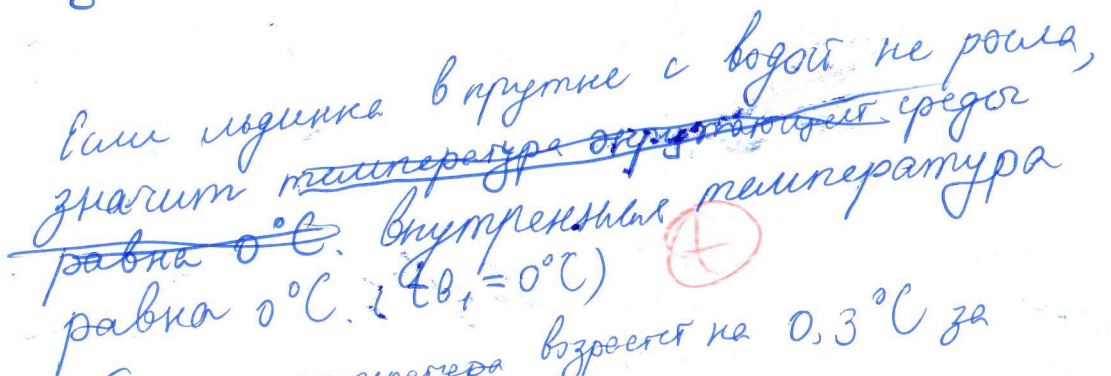 Если льдинка в прутке с водой не росла,
значит температура окружающей среды
равна 0°С. Внутренняя температура
равна 0°С. (tв₁ = 0°С)
возрастет на 0,3°С за